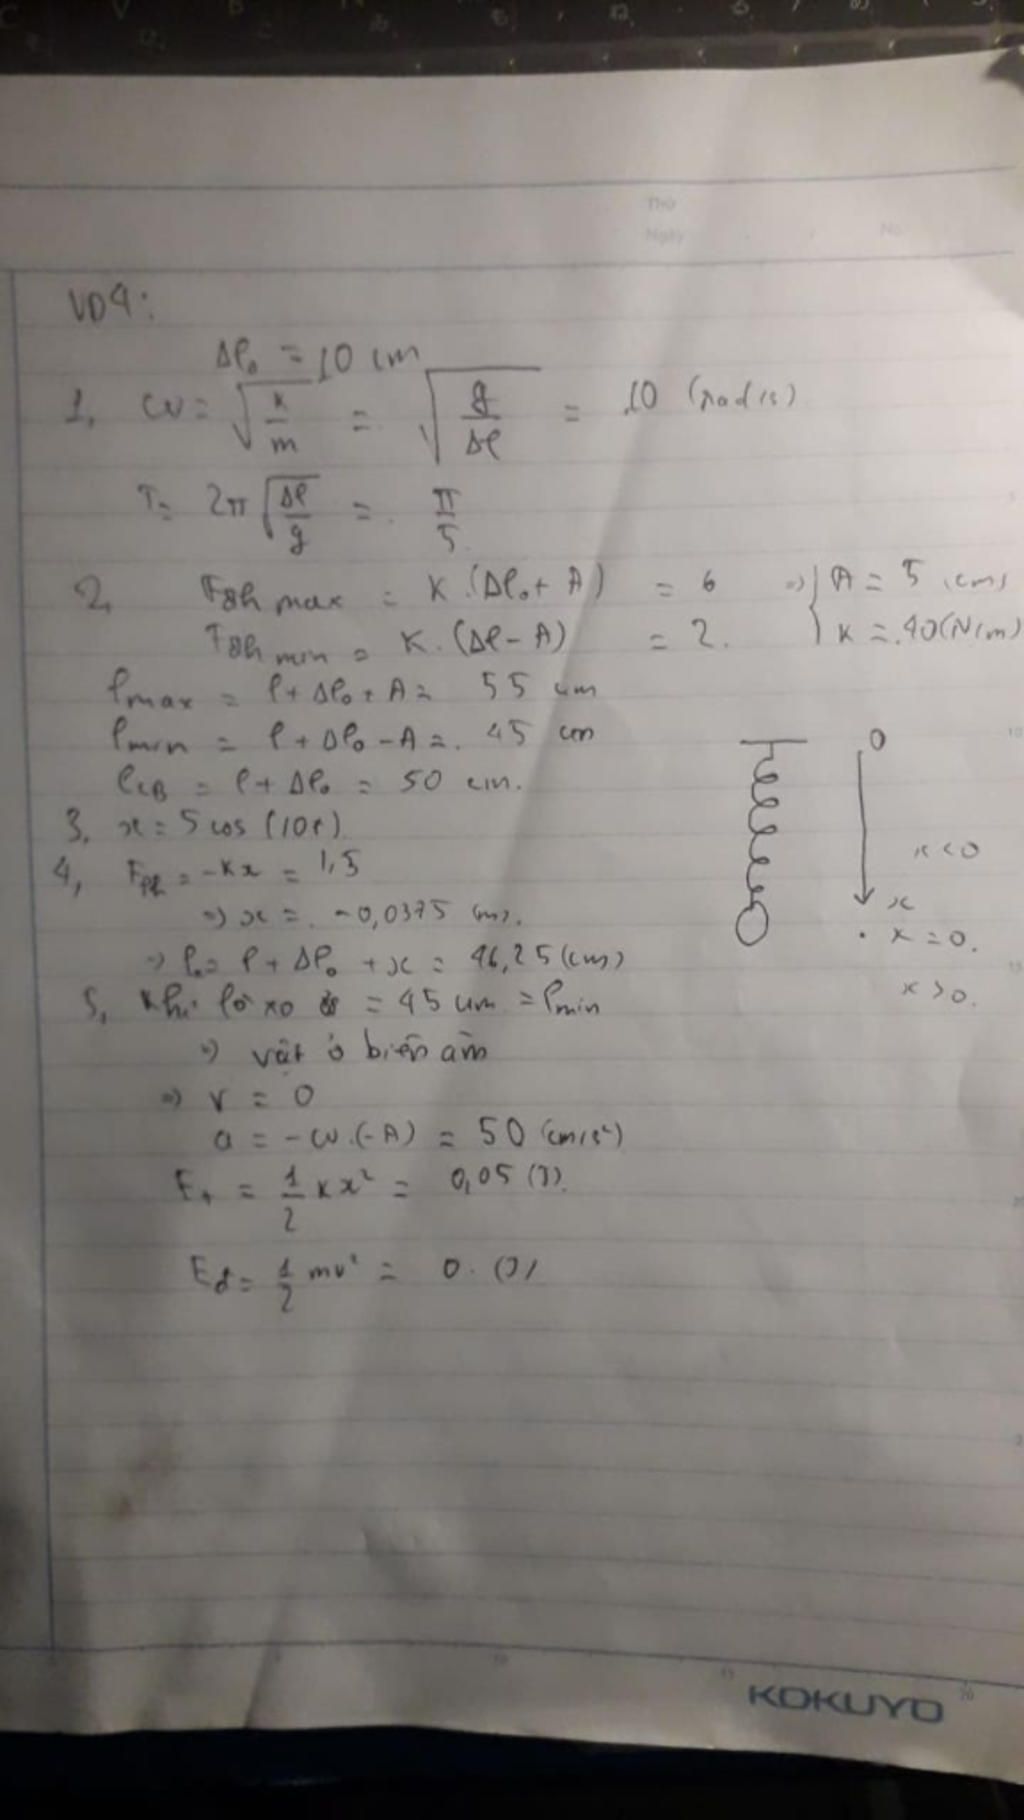 Thứ
Ngày
No.
VD4:
Δl₀ = 10 cm
1, ω = √(k/m) = √(g/Δl) = 10 (rad/s)
T = 2π √(Δl/g) = π/5
2, Fđh max = K.(Δl₀ + A) = 6 => { A = 5 (cm)
Fđh min = K.(Δl - A) = 2. K = 40(N/m)
lmax = l + Δl₀ + A = 55 cm
lmin = l + Δl₀ - A = 45 cm
lCB = l + Δl₀ = 50 cm.
3, x = 5 cos (10t)
4, Fph = -kx = 1,5
=> x = -0,0375 (m).
=> l = l + Δl₀ + x = 46,25 (cm)
5, Khi lò xo = 45 cm = lmin
=> vật ở biên âm
=> v = 0
a = -ω.(-A) = 50 (cm/s²)
Et = 1/2 kx² = 0,05 (J).
Eđ = 1/2 mv² = 0. (J)
O
x < 0
x
x = 0.
x > 0.
KOKUYO